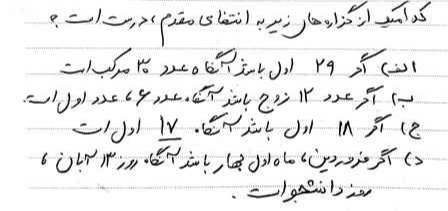 کدامیک از گزاره‌های زیر به انتفای مقدم، درست است؟
الف) اگر ۲۹ اول باشد آنگاه عدد ۳۰ مرکب است
ب) اگر عدد ۱۲ زوج باشد آنگاه عدد ۶، عدد اول است.
ج) اگر ۱۸ اول باشد آنگاه ۱۷ اول است
د) اگر فروردین، ماه اول بهار باشد آنگاه روز ۱۳ آبان،
روز دانشجو است.